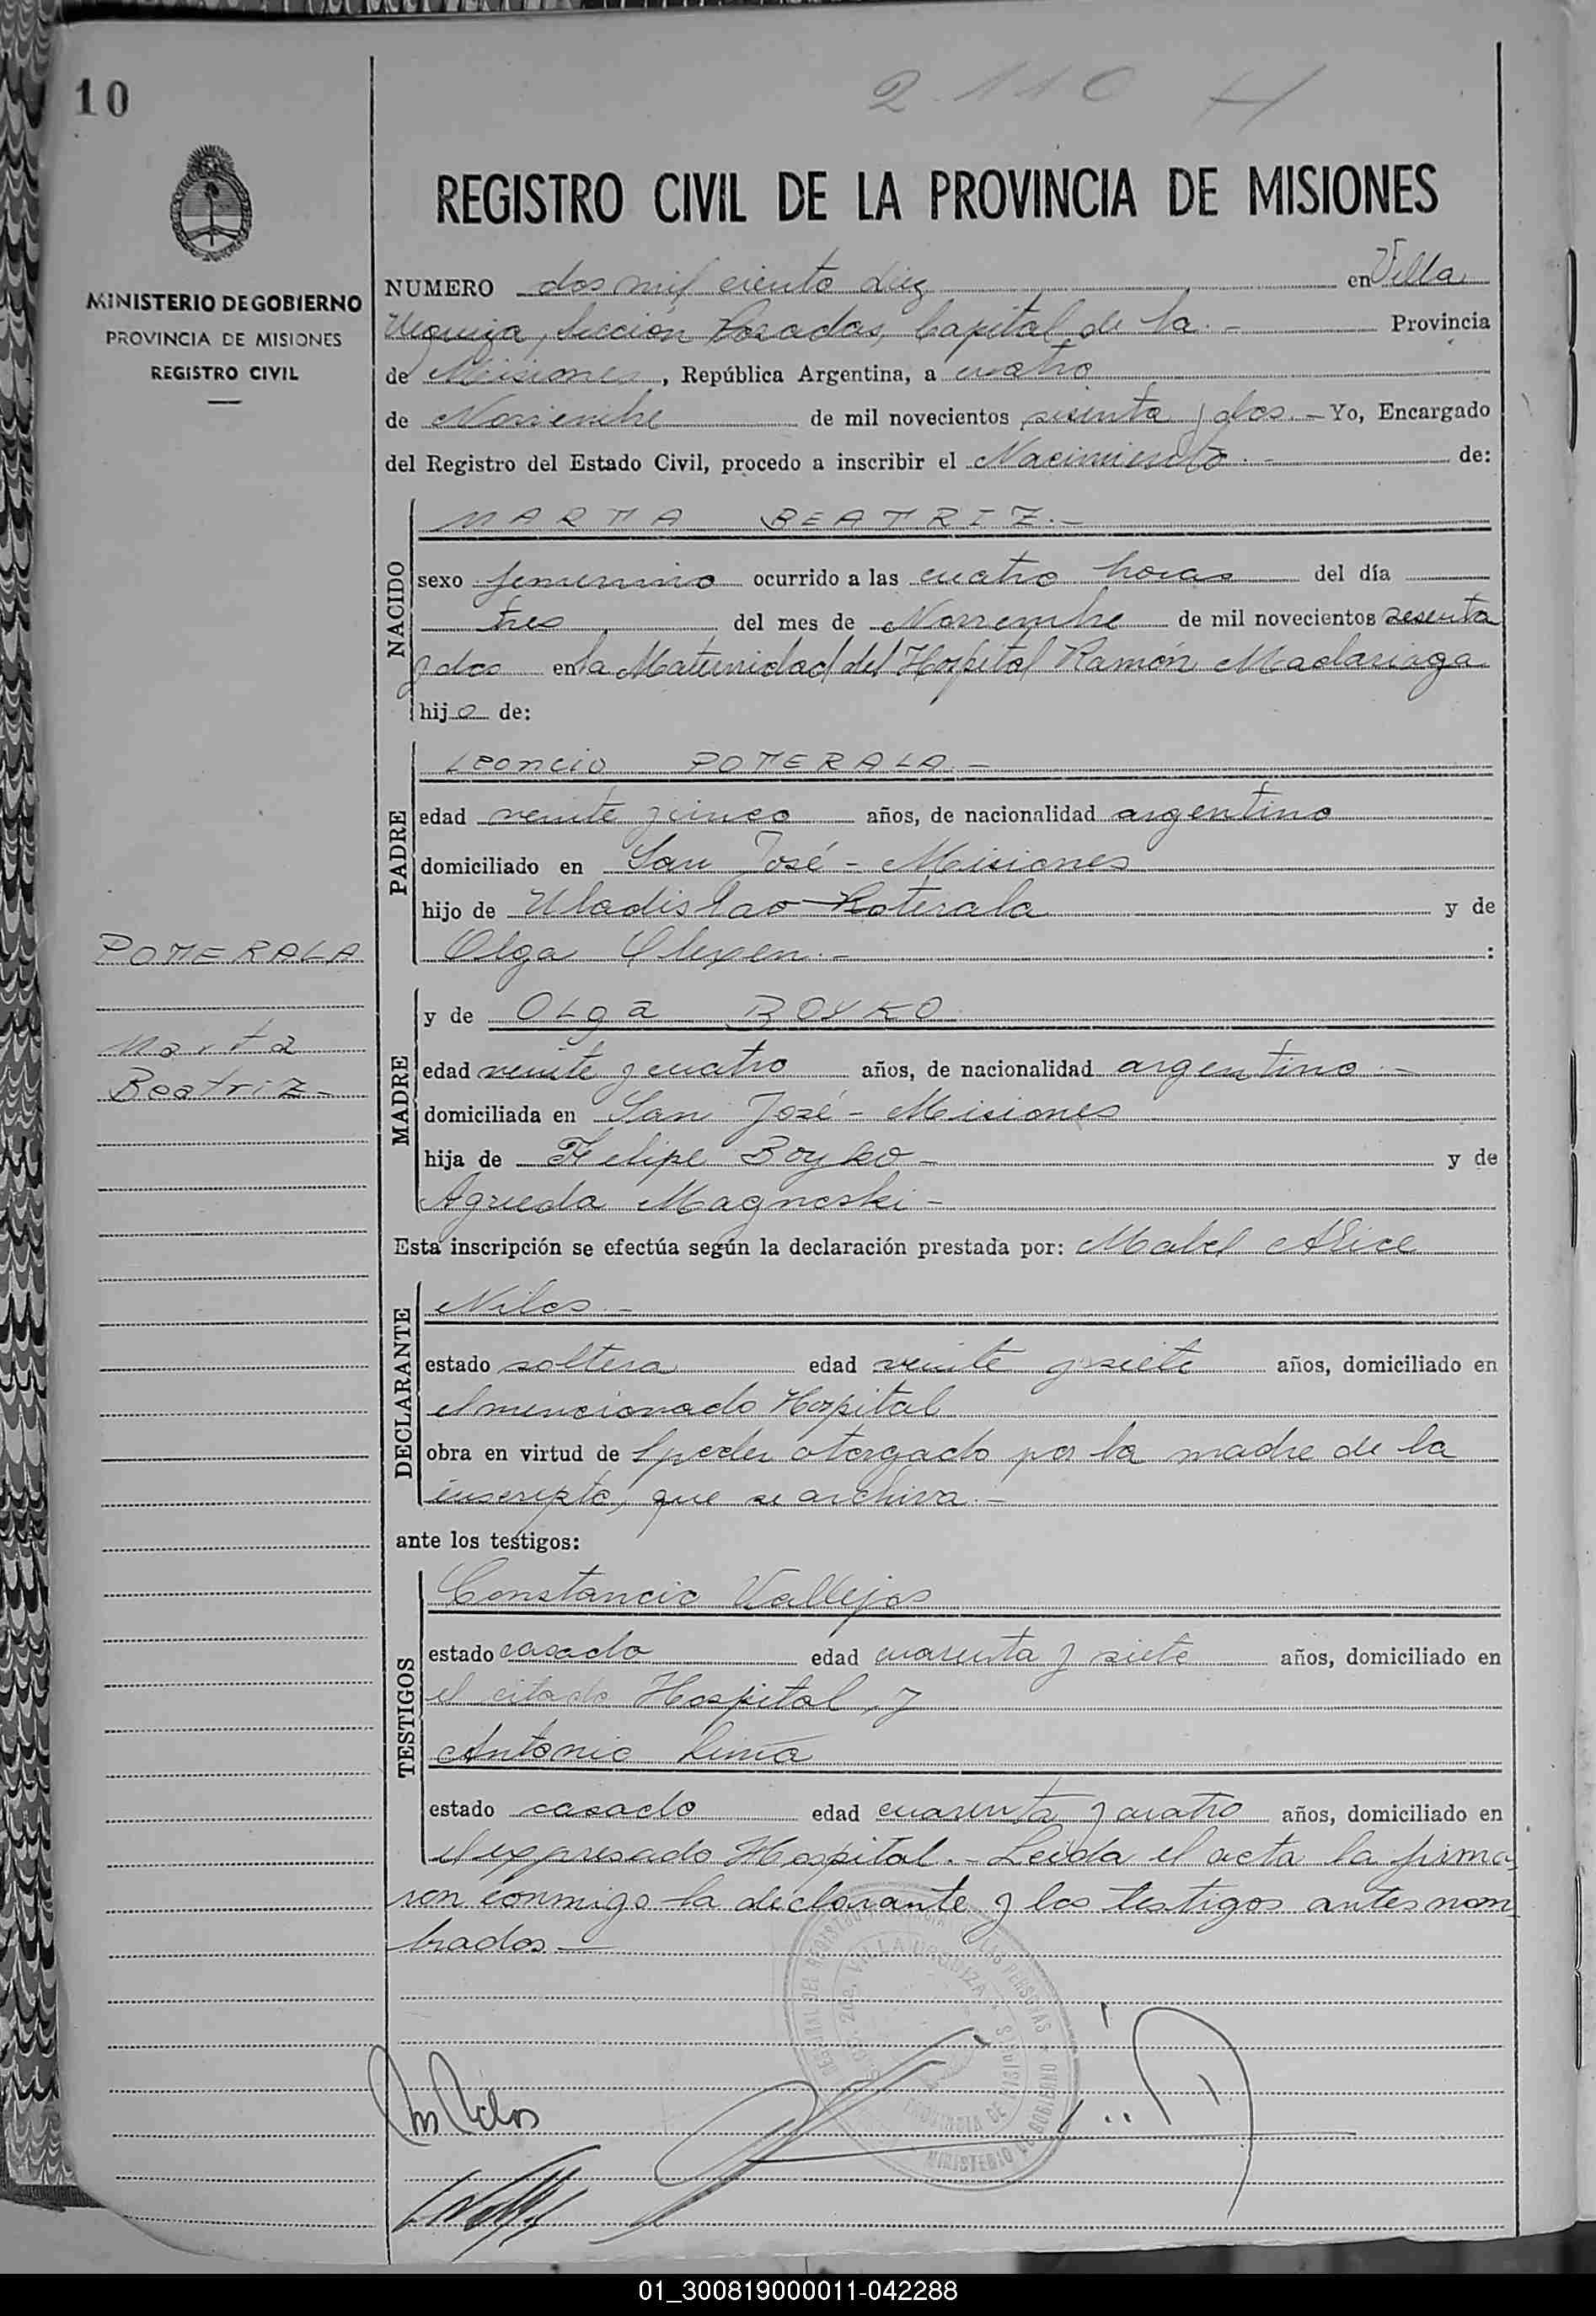 10
2110 H
REGISTRO CIVIL DE LA PROVINCIA DE MISIONES
MINISTERIO DE GOBIERNO
PROVINCIA DE MISIONES
REGISTRO CIVIL
NUMERO dos mil ciento diez en Villa
Urquiza, Sección Posadas, Capital de la.- Provincia
de Misiones, República Argentina, a cuatro
de Noviembre de mil novecientos sesenta y dos.- Yo, Encargado
del Registro del Estado Civil, procedo a inscribir el Nacimiento.- de:
NACIDO
MARTA BEATRIZ.-
sexo femenino ocurrido a las cuatro horas del día
tres del mes de Noviembre de mil novecientos sesenta
y dos en la Maternidad del Hospital Ramón Madariaga
hija de:
PADRE
Leoncio POTERALA.-
edad veinte y cinco años, de nacionalidad argentino
domiciliado en San José - Misiones
hijo de Uladislao Poterala y de
Olga :
POTERALA
Marta
Beatriz-
MADRE
y de Olga BOYKO
edad veinte y cuatro años, de nacionalidad argentina.-
domiciliada en San José - Misiones
hija de Felipe Boyko - y de
Agueda Magneski -
Esta inscripción se efectúa según la declaración prestada por: Mabel Alice
DECLARANTE
Nilos.-
estado soltera edad veinte y siete años, domiciliado en
el mencionado Hospital
obra en virtud de poder otorgado por la madre de la
inscripta, que se archiva.-
ante los testigos:
TESTIGOS
Constancio Vallejos
estado casado edad cuarenta y siete años, domiciliado en
el citado Hospital, y
Antonio Lima
estado casado edad cuarenta y cuatro años, domiciliado en
el expresado Hospital.- Leída el acta la firma
ron conmigo la declarante y los testigos antes nom
brados.-
VILLA URQUIZA
PROVINCIA DE MISIONES
MINISTERIO DE GOBIERNO
01_300819000011-042288